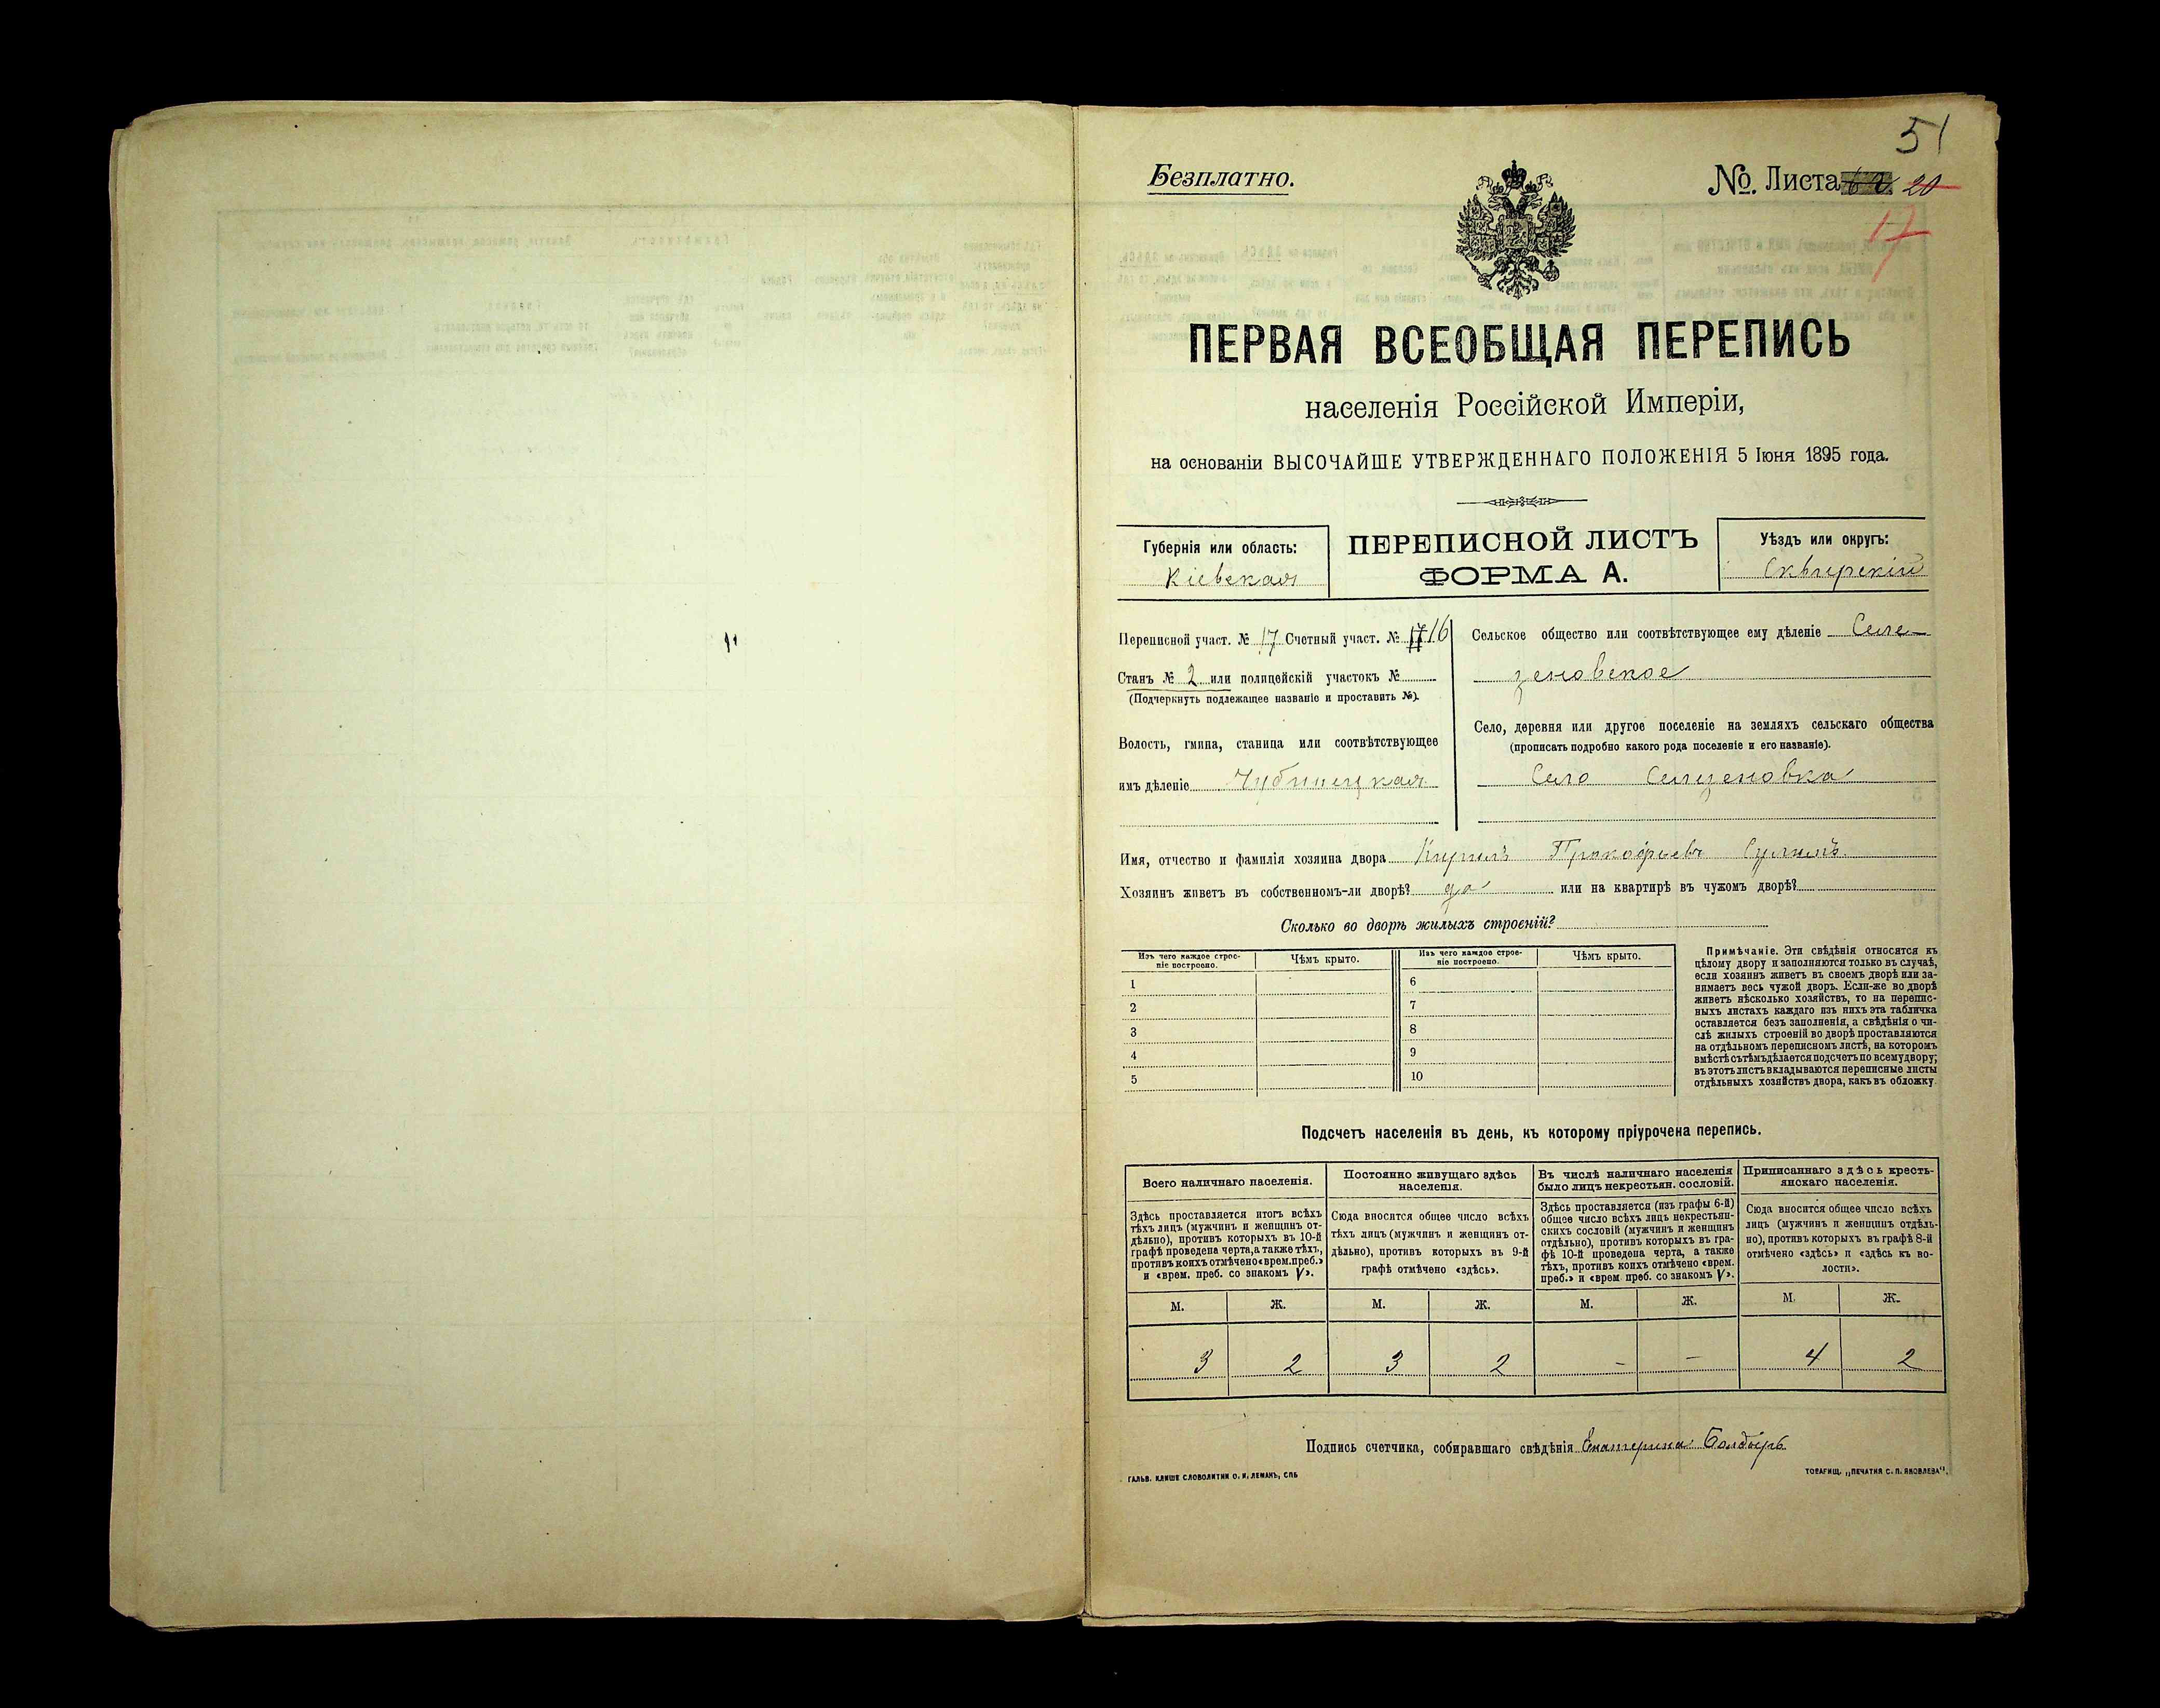 51
Безплатно.
№. Листа 20
17
ПЕРВАЯ ВСЕОБЩАЯ ПЕРЕПИСЬ
населенія Россійской Имперіи,
на основаніи ВЫСОЧАЙШЕ УТВЕРЖДЕННАГО ПОЛОЖЕНІЯ 5 Іюня 1895 года.
Губернія или область:
Кіевская
ПЕРЕПИСНОЙ ЛИСТЪ
ФОРМА А.
Уѣздъ или округъ:
Сквирскій
Переписной участ. № 17 Счетный участ. № 17 16
Станъ № 2 или полицейскій участокъ №
(Подчеркнуть подлежащее названіе и проставить №).
Волость, гмина, станица или соотвѣтствующее
имъ дѣленіе Чубинецкая
Сельское общество или соотвѣтствующее ему дѣленіе Селе-
зеновское
Село, деревня или другое поселеніе на земляхъ сельскаго общества
(прописать подробно какого рода поселеніе и его названіе).
Село Селезеновка
Имя, отчество и фамилія хозяина двора Кирилъ Прокофьевъ Сулимъ
Хозяинъ живетъ въ собственномъ-ли дворѣ? да или на квартирѣ въ чужомъ дворѣ?
Сколько во дворѣ жилыхъ строеній?
Изъ чего каждое строе-
ніе построено.
Чѣмъ крыто.
Изъ чего каждое строе-
ніе построено.
Чѣмъ крыто.
1 6
2 7
3 8
4 9
5 10
Примѣчаніе. Эти свѣдѣнія относятся къ
цѣлому двору и заполняются только въ случаѣ,
если хозяинъ живетъ въ своемъ дворѣ или за-
нимаетъ весь чужой дворъ. Если-же во дворѣ
живетъ нѣсколько хозяйствъ, то на перепис-
ныхъ листахъ каждаго изъ нихъ эта табличка
оставляется безъ заполненія, а свѣдѣнія о чи-
слѣ жилыхъ строеній во дворѣ проставляются
на отдѣльномъ переписномъ листѣ, на которомъ
вмѣстѣ съ тѣмъ дѣлается подсчетъ по всему двору;
въ этотъ листъ вкладываются переписные листы
отдѣльныхъ хозяйствъ двора, какъ въ обложку.
Подсчетъ населенія въ день, къ которому пріурочена перепись.
Всего наличнаго населенія.
Здѣсь проставляется итогъ всѣхъ
тѣхъ лицъ (мужчинъ и женщинъ от-
дѣльно), противъ которыхъ въ 10-й
графѣ проведена черта, а также тѣхъ,
противъ коихъ отмѣчено «врем. преб.»
и «врем. преб. со знакомъ V».
Постоянно живущаго здѣсь
населенія.
Сюда вносится общее число всѣхъ
тѣхъ лицъ (мужчинъ и женщинъ от-
дѣльно), противъ которыхъ въ 9-й
графѣ отмѣчено «здѣсь».
Въ числѣ наличнаго населенія
было лицъ некрестьян. сословій.
Здѣсь проставляется (изъ графы 6-й)
общее число всѣхъ лицъ некрестьян-
скихъ сословій (мужчинъ и женщинъ
отдѣльно), противъ которыхъ въ гра-
фѣ 10-й проведена черта, а также
тѣхъ, противъ коихъ отмѣчено «врем.
преб.» и «врем. преб. со знакомъ V».
Приписаннаго здѣсь кресть-
янскаго населенія.
Сюда вносится общее число всѣхъ
лицъ (мужчинъ и женщинъ отдѣль-
но), противъ которыхъ въ графѣ 8-й
отмѣчено «здѣсь» и «здѣсь къ во-
лости».
М. Ж. М. Ж. М. Ж. М. Ж.
3 2 3 2 – – 4 2
Подпись счетчика, собиравшаго свѣдѣнія Екатерина Болдырь
ГАЛЬВ. КЛИШЕ СЛОВОЛИТНИ О. И. ЛЕМАНЪ, СПБ
ТОВАРИЩ. „ПЕЧАТНЯ С. П. ЯКОВЛЕВА“.